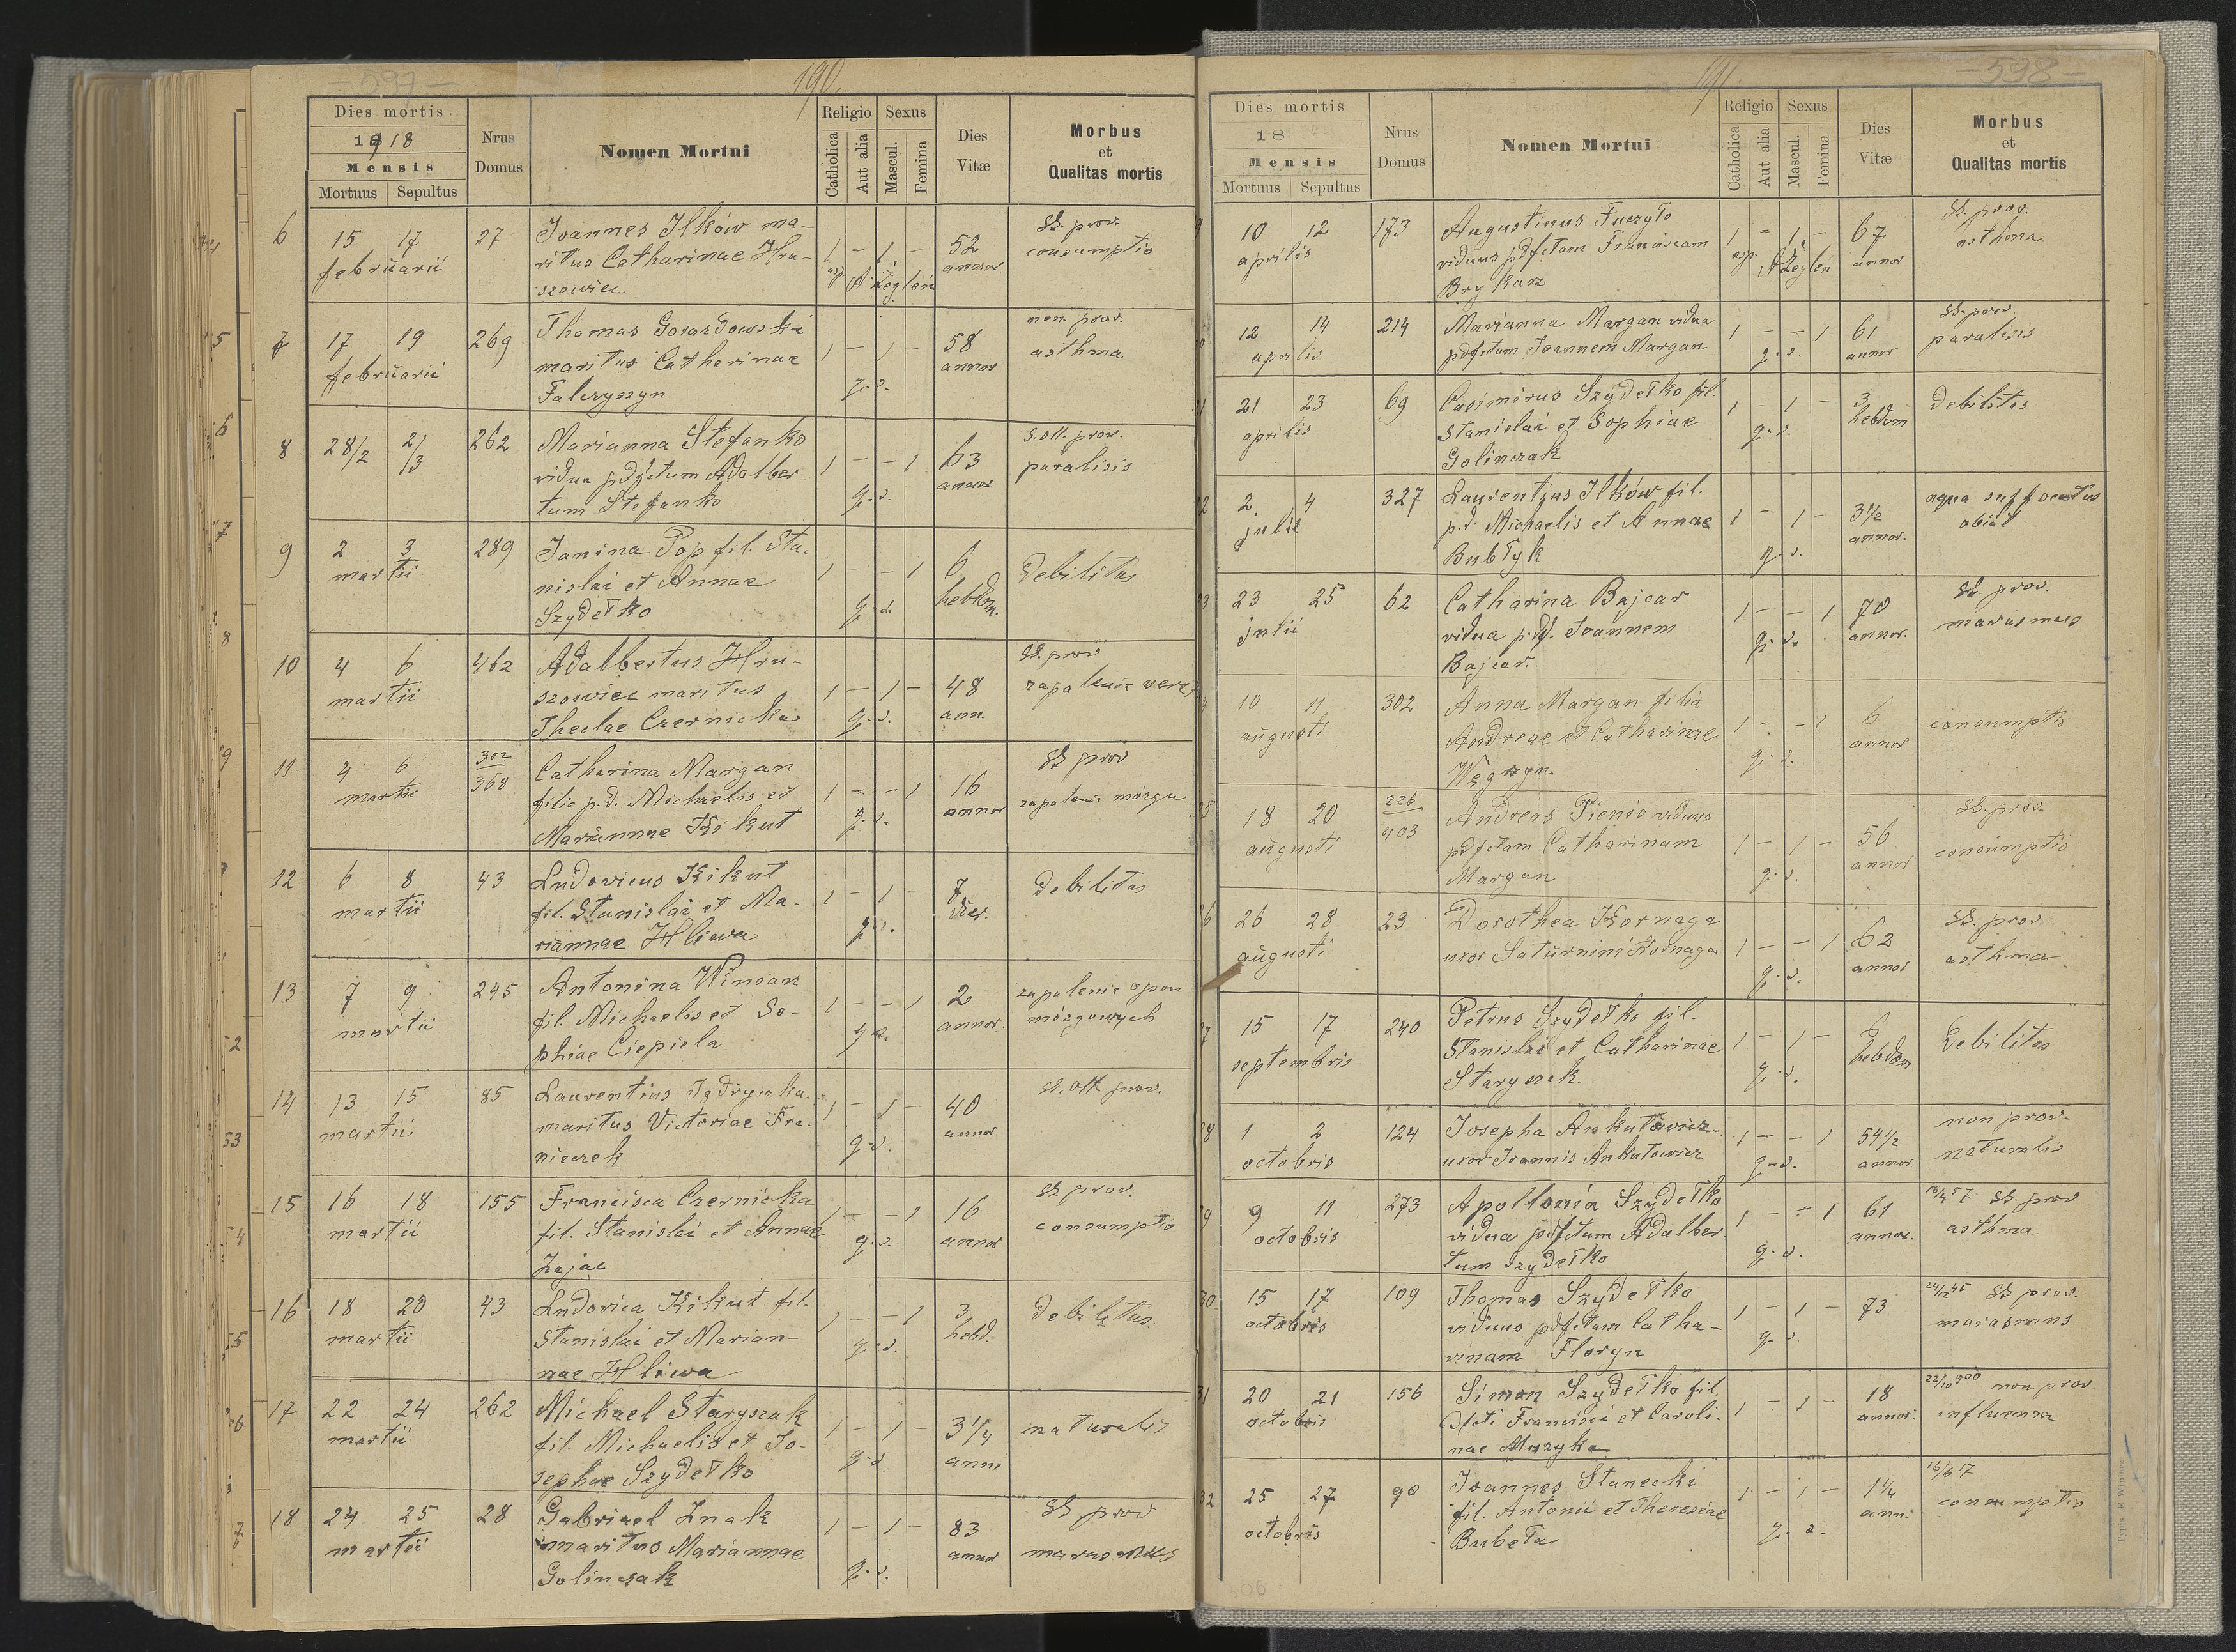 - 597 -
190.
Dies mortis
1918
Mensis
Mortuus Sepultus
Nrus Domus
Nomen Mortui
Religio
Catholica
Aut alia
Sexus
Mascul.
Femina
Dies Vitæ
Morbus
et
Qualitas mortis
6 15 17 27 Joannes Ilków ma- 1 - 1 - 52 SS. prov.
februarii ritus Catharinae Hru- annor consumptio
szowiec
7 17 19 269 Thomas Gorazdowski 1 - 1 - 58 non prov.
februarii maritus Catharinae annor asthma
Falczyszyn g. s.
8 28/2 2/3 262 Marianna Stefanko 1 - - 1 63 S. Oll. prov.
vidua p. dfctum Adalber- annor paralisis
tum Stefanko g. s.
9 2 3 289 Janina Pop fil. Sta- 1 - - 1 6 debilitas
martii nislai et Annae hebdm.
Szydełko g. s.
10 4 6 462 Adalbertus Hru- 1 - 1 - 48 SS. prov
martii szowiec maritus ann. zapalenie
Theclae Czernicka g. s.
11 4 6 302/368 Catharina Margan 1 - - 1 16 SS prov
martii filia p. d. Michaelis et annor zapalenie mózgu
Mariannae Kikut g. s.
12 6 8 43 Ludovicus Kikut 1 - 1 - 7 debilitas
martii fil. Stanislai et Ma- dier.
riannae Hliwa g. s.
13 7 9 245 Antonina Winiarz 1 - - 1 2 zapalenie opon
martii fil. Michaelis et So- annor. mózgowych
phiae Ciepiela g. s.
14 13 15 85 Laurentius 1 - 1 - 40 SS. Oll. prov.
martii maritus Victoriae Fra- annor
niczek g. s.
15 16 18 155 Francisca Czernicka 1 - - 1 16 SS prov.
martii fil. Stanislai et Annae annor consumpto
Zając g. s.
16 18 20 43 Ludovica Kikut fil. 1 - - 1 3 debilitas
martii Stanislai et Marian- hebd.
nae Hliwa g. s.
17 22 24 262 Michael Staryszak 1 - 1 - 3 1/4 naturalis
martii fil. Michaelis et Jo- anni
sephae Szydełko g. s.
18 24 25 28 Gabriael Znak 1 - 1 - 83 SS prov
martii maritus Mariannae annor marasmus
Golinczak g. s.
191.
- 598 -
Dies mortis
18
Mensis
Mortuus Sepultus
Nrus Domus
Nomen Mortui
Religio
Catholica
Aut alia
Sexus
Mascul.
Femina
Dies Vitæ
Morbus
et
Qualitas mortis
10 12 173 Augustinus Fuczyło 1 - 1 - 67 SS. prov.
aprilis viduus p dfctam Franciscam annor asthma
Brykarz
12 14 214 Marianna Margan vidua 1 - - 1 61 SS. prov.
aprilis pdfctum Joannem Margan g. s. annor paralisis
21 23 69 Casimirus Szydełko fil. 1 - 1 - 3 debilitas
aprilis Stanislai et Sophiae g. s. hebdom
Golinczak
2 4 327 Laurentzus Ilków fil. 1 - 1 - 3 1/2 aqua suffocatus
julii p. d. Michaelis et Annae annor. obiit
Bubłyk g. s.
23 25 62 Catharina Bajcar 1 - - 1 70 SS. prov.
julii vidua p. df. Joannem g. s. annor. marasmus
Bajcar.
10 11 302 Anna Margan filia 1 - - 1 6 consumptio
augusti Andreae et Catharinae annor
Węgrzyn g. s.
18 20 226/403 Andreas Pienio viduus 1 - 1 - 56 SS. prov.
augusti pdfctam Catharinam annor consumptio
Margan g. s.
26 28 23 Dorothea Kornaga 1 - - 1 62 SS. prov.
augusti uxor Saturnini Kornaga g. s. annor asthma
15 17 240 Petrus Szydełko fil. 1 - 1 - 6 Debilitas
septembris Stanislai et Catharinae hebdom
Staryszak. g. s.
28 1 2 124 Josepha Ankutowicz 1 - - 1 54 1/2 non prov.
octobris uxor Joannis Ankutowicz g. s. annor. naturalis
9 11 273 Apollonia Szydełko 1 - - 1 61 SS. prov
octobris vidua pdfctum Adalber- annor. asthma
tum Szydełko g. s.
30 15 17 109 Thomas Szydełko 1 - 1 - 73 24/12 45 SS prov.
octobris viduus pdfctam Catha- marasmus
rinam Floryn g. s.
31 20 21 156 Simon Szydełko fil. 1 - 1 - 18 22/10 900 non prov
octobris dfcti Francisci et Caroli- annor. influenza
nae Muzyka
32 25 27 90 Joannes Stanecki 1 - 1 - 1 1/4 16/6 17
octobris fil. Antonii et Theresiae anni consumptio
Bubeła g. s.
Typis E Winiarz